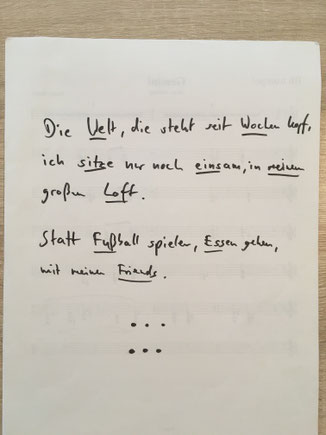 Die Welt, die steht seit Wochen kopf,
ich sitze nur noch einsam, in meinem
großen Loft.
Statt Fußball spielen, Essen gehen,
mit meinen Friends.
...
...